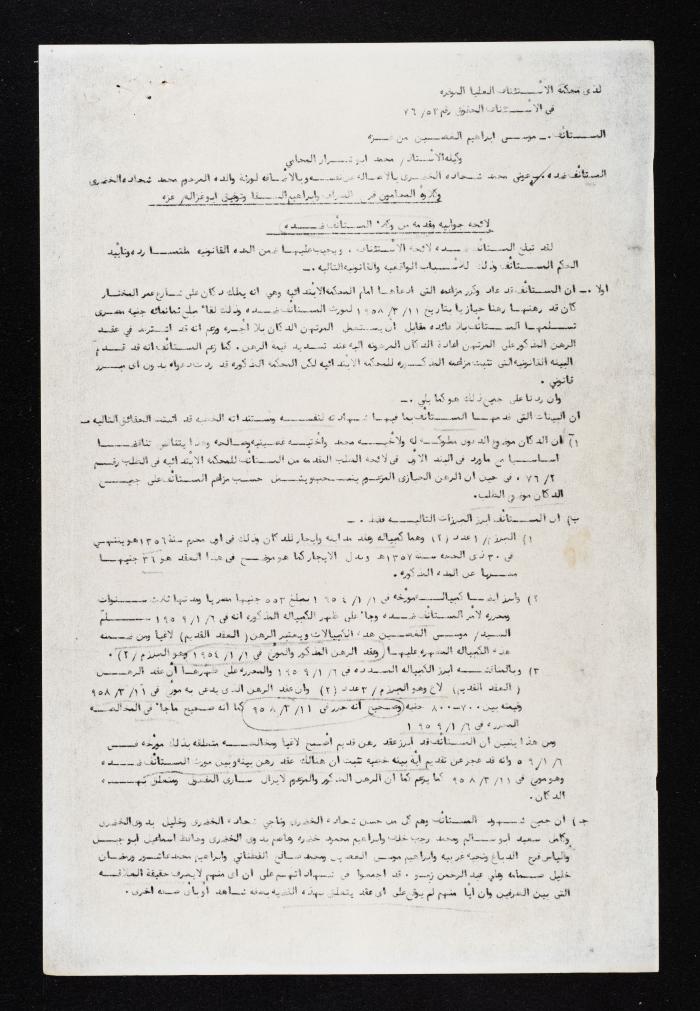 لدى محكمة الاستئناف العليا الموقره
في الاستئناف الحقوق رقم ٧٦/٥٣
المستأنف ـ موسى ابراهيم الغصين من غزه
وكيله الأستاذ/ محمد ابو شرار المحامي
المستأنف ضده ـ عوني محمد شحاده الخضرى بالاصاله عن نفسه وبالأضافه لورثة والده المرحوم محمد شحاده الخضرى
وكلاؤه المحامون فرج الصراف وابراهيم السقا وتوفيق ابو غزاله غزه
لائحه جوابيه مقدمه من وكلاء المستأنف ضده
لقد تبلغ المستأنف ضده لائحة الأستئناف ، ويجيب عليها ضمن المده القانونيه ملتمسا رده وتأييد
الحكم المستأنف وذلك للأسباب الواقعيه والقانونيه التاليه .ـ
اولا .ـ ان المستأنف قد عاد وكرر مزاعمه التي ادعاها امام المحكمة الابتدائيه وهي انه يملك دكان على شارع عمر المختار
كان قد رهنها رهنا حيازيا بتاريخ ١١/٣/٩٥٨ لمورث المستأنف ضده وذلك لقاء مبلغ ثمانمائه جنيه مصرى
تسلمها المستأنف بلا فائده مقابل ان يستعمل المرتهن الدكان بلا أجره وزعم انه قد اشترط في عقد
الرهن المذكور على المرتهن اعادة الدكان المرهونه اليه عند تسديد قيمة الرهن . كما زعم المستأنف انه قد قدم
البينه القانونيه التي تثبت مزاعمه المذكوره للمحكمه الابتدائيه لكن المحكمه المذكوره قد ردت دعواه بدون اى مبرر
قانوني .
وان ردنا على جميع ذلك هو كما يلي .ـ
ان البينات التي قدمها المستأنف بما فيها شهادته لنفسه ومستنداته الخطيه قد اثبتت الحقائق التاليه ـ
أ) ان الدكان موضوع الدعوى مملوكه له ولأخيه محمد وأختيه وهذا يتناقض تناقضا
اساسيا مع ماورد في البند الأول في لائحة الطلب المقدمه من المستأنف للمحكمة الابتدائيه في الطلب رقم
٧٦/٢ . في حين ان الرهن الحيازى المزعوم ينصب ويشمل حسب مزاعم المستأنف على جميع
الدكان موضوع الطلب.
ب) ان المستأنف ابرز المبرزات التاليه فقط .ـ
١) المبرز/ ١ عدد (٢) وهما كمبياله وعقد مداينه وايجار للدكان وذلك في اول محرم سنة ١٣٥٦ هو ينتهي
في ٣٠ ذى الحجه سنه ١٣٥٧هـ وبدل الايجار كما هو موضح في هذا العقد هو ٣٦ جنيها
مصريا عن المده المذكوره .
٢) وابرز ايضا كمبياله مؤرخه في ١/١/١٩٥٤ بمبلغ ٥٥٣ جنيها مصريا ومدتها ثلاث سنوات
ومحرره لأمر المستأنف ضده وجاء على ظهر الكمبياله المذكوره انه في ١٩٥٩/١/٦ سلم
السيد/ موسى الغصين هذه الكمبيالات ويعتبر الرهن (العقد القديم) لاغيا ومن ضمنه
هذه الكمبياله المظهر عليها وعقد الرهن المذكور والمؤرخ في ١/١/١٩٥٤ وهو المبرز م/(٢).
٣) وبالمناقشه ابرز الكمبياله المسدده في ١٩٥٩/١/٦ والمحرره على ظهرها أن عقد الرهن
(العقد القديم) لاغ وهو المبرز م/٣ عدد (٢) وان عقد الرهن الذى يدعى به مؤرخ في ٩٥٨/٣/١١
وقيمته بين ٧٠٠ـ٨٠٠ جنيه وصحيح أنه حرر في ٩٥٨/٣/١١ كما انه صحيح ماجاء في المخالصه
المحرره في ١٩٥٩/١/٦
ومن هذا يتبين ان المستأنف قد ابرز عقد رهن قديم أصبح لاغيا ومخالصه متعلقه بذلك مؤرخه في
٥٩/١/٦ وانه قد عجز عن تقديم أية بينه خطيه تثبت ان هنالك عقد رهن بينه وبين مورث المستأنف ضده
وهو مؤرخ في ٩٥٨/٣/١١ كما يزعم كما ان الرهن المذكور والمزعوم لايزال سارى المفعول ومتعلق بهذه
الدكان .
جـ) ان جميع شهود المستأنف وهم كل من حسن شحاده الخضرى وناجي شحاده الخضرى وخليل بدوى الخضرى
وكامل سعيد ابو سالم ومحمد رجب خلف وابراهيم محمود خضره وهاشم بدوى الخضرى وحافظ اسماعيل ابو جبل
والياس فرح الدباغ وابراهيم موسى الغصين ومحمد صالح القططي وابراهيم محمد عاشور ورمضان
خليل سمامه وعلي عبد الرحمن زمو . قد اجمعوا في شهاداتهم على ان اى منهم لايعرف حقيقة العلاقه
التي بين الطرفين وان أيا منهم لم يوقع على اى عقد يتعلق بهذه القضيه بصفه شاهد أو بأى صفه اخرى .